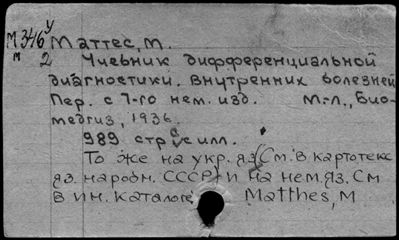 М 346 у Маттес, М.
м 2 Учебник дифференциальной
диагностики. внутренних болезней
Пер. с 7-го нем. изд. М-Л., Био-
медгиз, 1936.
989 стр с илл.
То же на укр. яз. См. в картотеке
яз. народн. СССР, и на нем. яз. См
в ин. каталоге Matthes, M